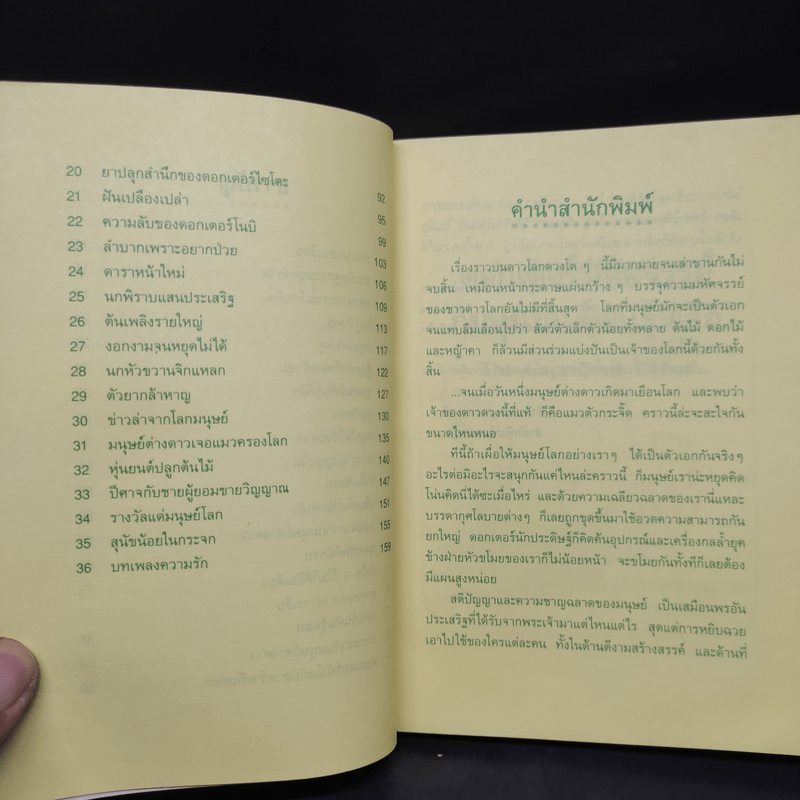 20 ยาปลุกสำนึกของดอกเตอร์ไซโตะ
21 ฝันเปลืองเปล่า 92
22 ความลับของดอกเตอร์โนบิ 99
23 ลำบากเพราะอยากป่วย 103
24 ดาราหน้าใหม่ 106
25 นกพิราบแสนประเสริฐ 109
26 ต้นเพลิงรายใหญ่ 113
27 งอกงามจนหยุดไม่ได้ 117
28 นกหัวขวานจิกแหลก 122
29 ตัวยากล้าหาญ 127
30 ข่าวล่าจากโลกมนุษย์ 130
31 มนุษย์ต่างดาวเจอแมวครองโลก 135
32 หุ่นยนต์ปลูกต้นไม้ 140
33 ปีศาจกับชายผู้ยอมขายวิญญาณ 147
34 รางวัลแด่มนุษย์โลก 151
35 สุนัขน้อยในกระจก 155
36 บทเพลงความรัก 159
คำนำสำนักพิมพ์
เรื่องราวบนดาวโลกดวงโต ๆ นี้มีมากมายจนเล่าขานกันไม่
จบสิ้น เหมือนหน้ากระดาษแผ่นกว้าง ๆ บรรจุความมหัศจรรย์
ของชาวดาวโลกอันไม่มีที่สิ้นสุด โลกที่มนุษย์มักจะเป็นตัวเอก
จนแทบลืมเลือนไปว่า สัตว์ตัวเล็กตัวน้อยทั้งหลาย ต้นไม้ ดอกไม้
และหญ้าคา ก็ล้วนมีส่วนร่วมแบ่งปันเป็นเจ้าของโลกนี้ด้วยกันทั้ง
สิ้น
...จนเมื่อวันหนึ่งมนุษย์ต่างดาวเกิดมาเยือนโลก และพบว่า
เจ้าของดาวดวงนี้ที่แท้ ก็คือแมวตัวกระจิ๊ด คราวนี้ล่ะจะสะใจกัน
ขนาดไหนหนอ
ทีนี้ถ้าเผื่อให้มนุษย์โลกอย่างเราๆ ได้เป็นตัวเอกกันจริงๆ
อะไรต่อมิอะไรจะสนุกกันแค่ไหนล่ะคราวนี้ ก็มนุษย์เราน่ะหยุดคิด
โน่นคิดนี่ได้ซะเมื่อไหร่ และด้วยความเฉลียวฉลาดของเรานี่แหละ
บรรดากุศโลบายต่างๆ ก็เลยถูกขุดขึ้นมาใช้อวดความสามารถกัน
ยกใหญ่ ดอกเตอร์นักประดิษฐ์ก็คิดค้นอุปกรณ์และเครื่องกลล้ำยุค
ข้างฝ่ายหัวขโมยของเราก็ไม่น้อยหน้า จะขโมยกันทั้งทีก็เลยต้อง
มีแผนสูงหน่อย
สติปัญญาและความชาญฉลาดของมนุษย์ เป็นเสมือนพรอัน
ประเสริฐที่ได้รับจากพระเจ้ามาแต่ไหนแต่ไร สุดแต่การหยิบฉวย
เอาไปใช้ของใครแต่ละคน ทั้งในด้านดีงามสร้างสรรค์ และด้านที่